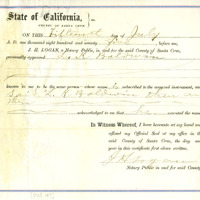 State of California,
COUNTY OF SANTA CRUZ
ON THIS Fifteenth day of July
A. D. one thousand eight hundred and ninety before me,
J. H. LOGAN a Notary Public, in and for the said County of Santa Cruz,
personally appeared L. K. Baldwin
known to me to be the same person whose name is subscribed to the annexed instrument,
said L. K. Baldwin
acknowledged to me that he executed the same
In Witness Whereof, I have hereunto set my hand and
affixed my Official Seal at my office in the
said County of Santa Cruz, the day and
year in this certificate first above written.
J. H. Logan
Notary Public in and for said County